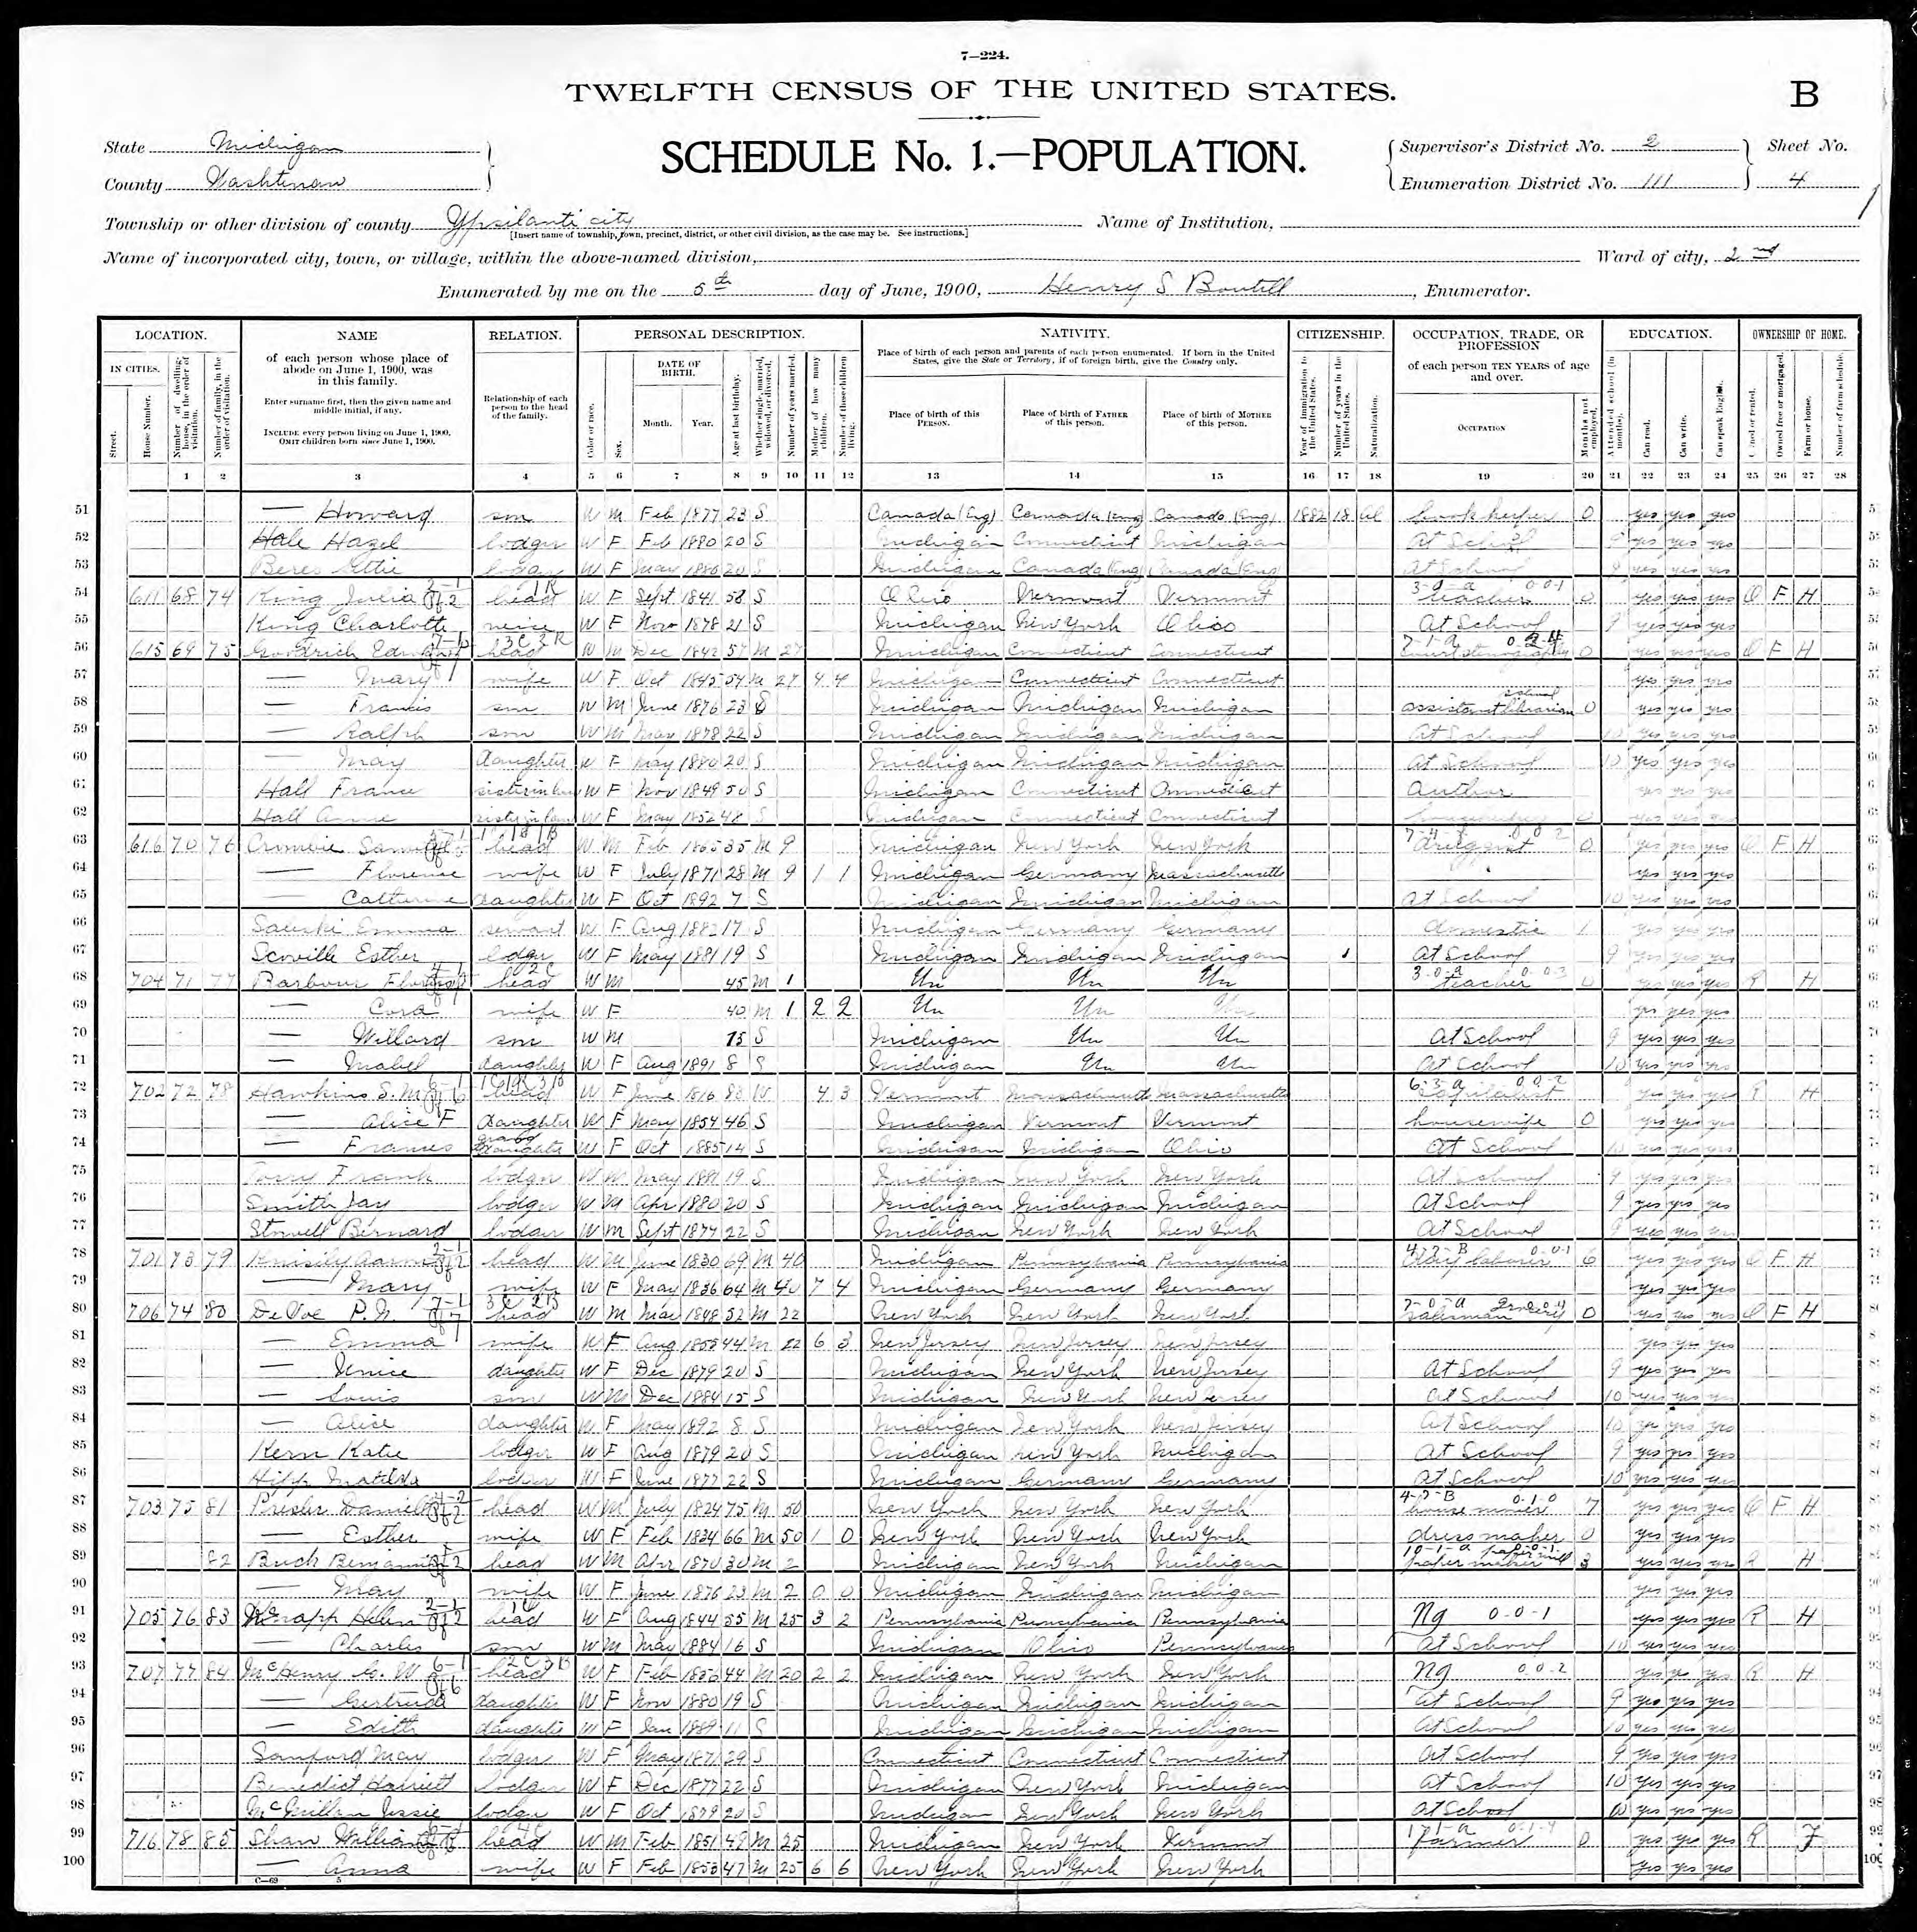 7—224.
TWELFTH CENSUS OF THE UNITED STATES.
B
State Michigan
County Washtenaw
SCHEDULE No. 1.—POPULATION.
Supervisor's District No. 2
Enumeration District No. 111
Sheet No.
4
Township or other division of county Ypsilanti city
[Insert name of township, town, precinct, district, or other civil division, as the case may be. See instructions.]
Name of Institution,
Name of incorporated city, town, or village, within the above-named division,
Ward of city, 2nd
Enumerated by me on the 5th day of June, 1900, Henry S Boutell, Enumerator.
LOCATION. NAME RELATION. PERSONAL DESCRIPTION. NATIVITY. CITIZENSHIP. OCCUPATION, TRADE, OR PROFESSION EDUCATION. OWNERSHIP OF HOME.
IN CITIES.
Street.
House Number.
Number of dwelling-house, in the order of visitation.
Number of family, in the order of visitation.
of each person whose place of abode on June 1, 1900, was in this family.
Enter surname first, then the given name and middle initial, if any.
INCLUDE every person living on June 1, 1900.
OMIT children born since June 1, 1900.
Relationship of each person to the head of the family.
Color or race.
Sex.
DATE OF BIRTH.
Month. Year.
Age at last birthday.
Whether single, married, widowed, or divorced.
Number of years married.
Mother of how many children.
Number of these children living.
Place of birth of each person and parents of each person enumerated. If born in the United States, give the State or Territory; if of foreign birth, give the Country only.
Place of birth of this PERSON.
Place of birth of FATHER of this person.
Place of birth of MOTHER of this person.
Year of immigration to the United States.
Number of years in the United States.
Naturalization.
of each person TEN YEARS of age and over.
OCCUPATION
Months not employed.
Attended school (in months).
Can read.
Can write.
Can speak English.
Owned or rented.
Owned free or mortgaged.
Farm or house.
Number of farm schedule.
1 2 3 4 5 6 7 8 9 10 11 12 13 14 15 16 17 18 19 20 21 22 23 24 25 26 27 28
51 — Howard son W M Feb 1877 23 S Canada (Eng) Canada (Eng) Canada (Eng) 1882 18 Al bookkeeper 0 yes yes yes
52 Hale Hazel lodger W F Feb 1880 20 S Michigan Connecticut Michigan At School 9 yes yes yes
53 lodger W F May 1880 20 S Michigan Canada (Eng) Canada (Eng) At School 9 yes yes yes
54 611 68 74 King Julia head W F Sept 1841 58 S Ohio Vermont Vermont teacher 0 yes yes yes O F H
55 King Charlotte neice W F Nov 1878 21 S Michigan New York Ohio At School 9 yes yes yes
56 615 69 75 Goodrich head W M Dec 1842 57 M 27 Michigan Connecticut Connecticut court stenographer 0 yes yes yes O F H
57 — Mary wife W F Oct 1845 54 M 27 4 4 Michigan Connecticut Connecticut yes yes yes
58 — Francis son W M June 1876 23 S Michigan Michigan Michigan assistant librarian 0 yes yes yes
59 — Ralph son W M May 1878 22 S Michigan Michigan Michigan At School 10 yes yes yes
60 — May daughter W F May 1880 20 S Michigan Michigan Michigan At School 10 yes yes yes
61 Hall France sister in law W F Nov 1849 50 S Michigan Connecticut Connecticut Author yes yes yes
62 Hall Anne sister in law W F May 1852 48 S Michigan Connecticut Connecticut 0 yes yes yes
63 616 70 76 Crombie Samuel head W M Feb 1865 35 M 9 Michigan New York New York druggist 0 yes yes yes O F H
64 — Florence wife W F July 1871 28 M 9 1 1 Michigan Germany Massachusetts yes yes yes
65 — Catherine daughter W F Oct 1892 7 S Michigan Michigan Michigan At School 10 yes yes yes
66 Emma servant W F Aug 1882 17 S Michigan Germany Germany domestic 1 yes yes yes
67 Scoville Esther lodger W F May 1881 19 S Michigan Michigan Michigan At School 9 yes yes yes
68 704 71 77 Barbour head W M 45 M 1 Un Un Un teacher 0 yes yes yes R H
69 — Cora wife W F 40 M 1 2 2 Un Un Un yes yes yes
70 — Willard son W M 15 S Michigan Un Un At School 9 yes yes yes
71 — Mabel daughter W F Aug 1891 8 S Michigan Un Un At School 10 yes yes yes
72 702 72 78 Hawkins S. M. head W F June 1816 83 W 4 3 Vermont Massachusetts Massachusetts capitalist yes yes yes R H
73 — Alice F daughter W F May 1854 46 S Michigan Vermont Vermont housewife 0 yes yes yes
74 — Frances grand daughter W F Oct 1885 14 S Michigan Michigan Ohio At School 10 yes yes yes
75 Frank lodger W M May 1881 19 S Michigan New York New York At School 9 yes yes yes
76 Smith Jay lodger W M Apr 1880 20 S Michigan Michigan Michigan At School 9 yes yes yes
77 Stowell Bernard lodger W M Sept 1877 22 S Michigan New York New York At School 9 yes yes yes
78 701 73 79 Aaron head W M June 1830 69 M 40 Michigan Pennsylvania Pennsylvania day laborer 6 yes yes yes O F H
79 — Mary wife W F May 1836 64 M 40 7 4 Michigan Germany Germany yes yes yes
80 706 74 80 DeVoe P. N. head W M Mar 1848 52 M 22 New York New York New York salesman grocery 0 yes yes yes O F H
81 — Emma wife W F Aug 1855 44 M 22 6 3 New Jersey New Jersey New Jersey yes yes yes
82 — Unice daughter W F Dec 1879 20 S Michigan New York New Jersey At School 9 yes yes yes
83 — Louis son W M Dec 1884 15 S Michigan New York New Jersey At School 10 yes yes yes
84 — Alice daughter W F May 1892 8 S Michigan New York New Jersey At School 10 yes yes yes
85 Kern Katie lodger W F Aug 1879 20 S Michigan New York Michigan At School 9 yes yes yes
86 Hipp Matilda lodger W F June 1877 22 S Michigan Germany Germany At School 10 yes yes yes
87 703 75 81 Daniel head W M July 1824 75 M 50 New York New York New York house mover 7 yes yes yes O F H
88 — Esther wife W F Feb 1834 66 M 50 1 0 New York New York New York dress maker 0 yes yes yes
89 82 Buck Benjamin head W M Apr 1870 30 M 2 Michigan New York Michigan paper maker paper mill 3 yes yes yes R H
90 — May wife W F June 1876 23 M 2 0 0 Michigan Michigan Michigan yes yes yes
91 705 76 83 Helen head W F Aug 1844 55 M 25 3 2 Pennsylvania Pennsylvania Pennsylvania Ng 0-0-1 yes yes yes R H
92 — Charles son W M May 1884 16 S Michigan Ohio Pennsylvania At School 10 yes yes yes
93 707 77 84 McHenry G. W. head W F Feb 1856 44 M 20 2 2 Michigan New York New York Ng 0-0-2 yes yes yes R H
94 — Gertrude daughter W F Nov 1880 19 S Michigan Michigan Michigan At School 9 yes yes yes
95 — Edith daughter W F Jan 1889 11 S Michigan Michigan Michigan At School 10 yes yes yes
96 Sanford May lodger W F May 1871 29 S Connecticut Connecticut Connecticut At School 9 yes yes yes
97 Benedict Harriett lodger W F Dec 1877 22 S Michigan New York Michigan At School 10 yes yes yes
98 McMillan Jessie lodger W F Oct 1879 20 S Michigan New York New York At School 10 yes yes yes
99 716 78 85 Shaw William head W M Feb 1851 49 M 25 Michigan New York Vermont Farmer 0 yes yes yes R F
100 — Anna wife W F Feb 1853 47 M 25 6 6 New York New York New York yes yes yes
C—69 5